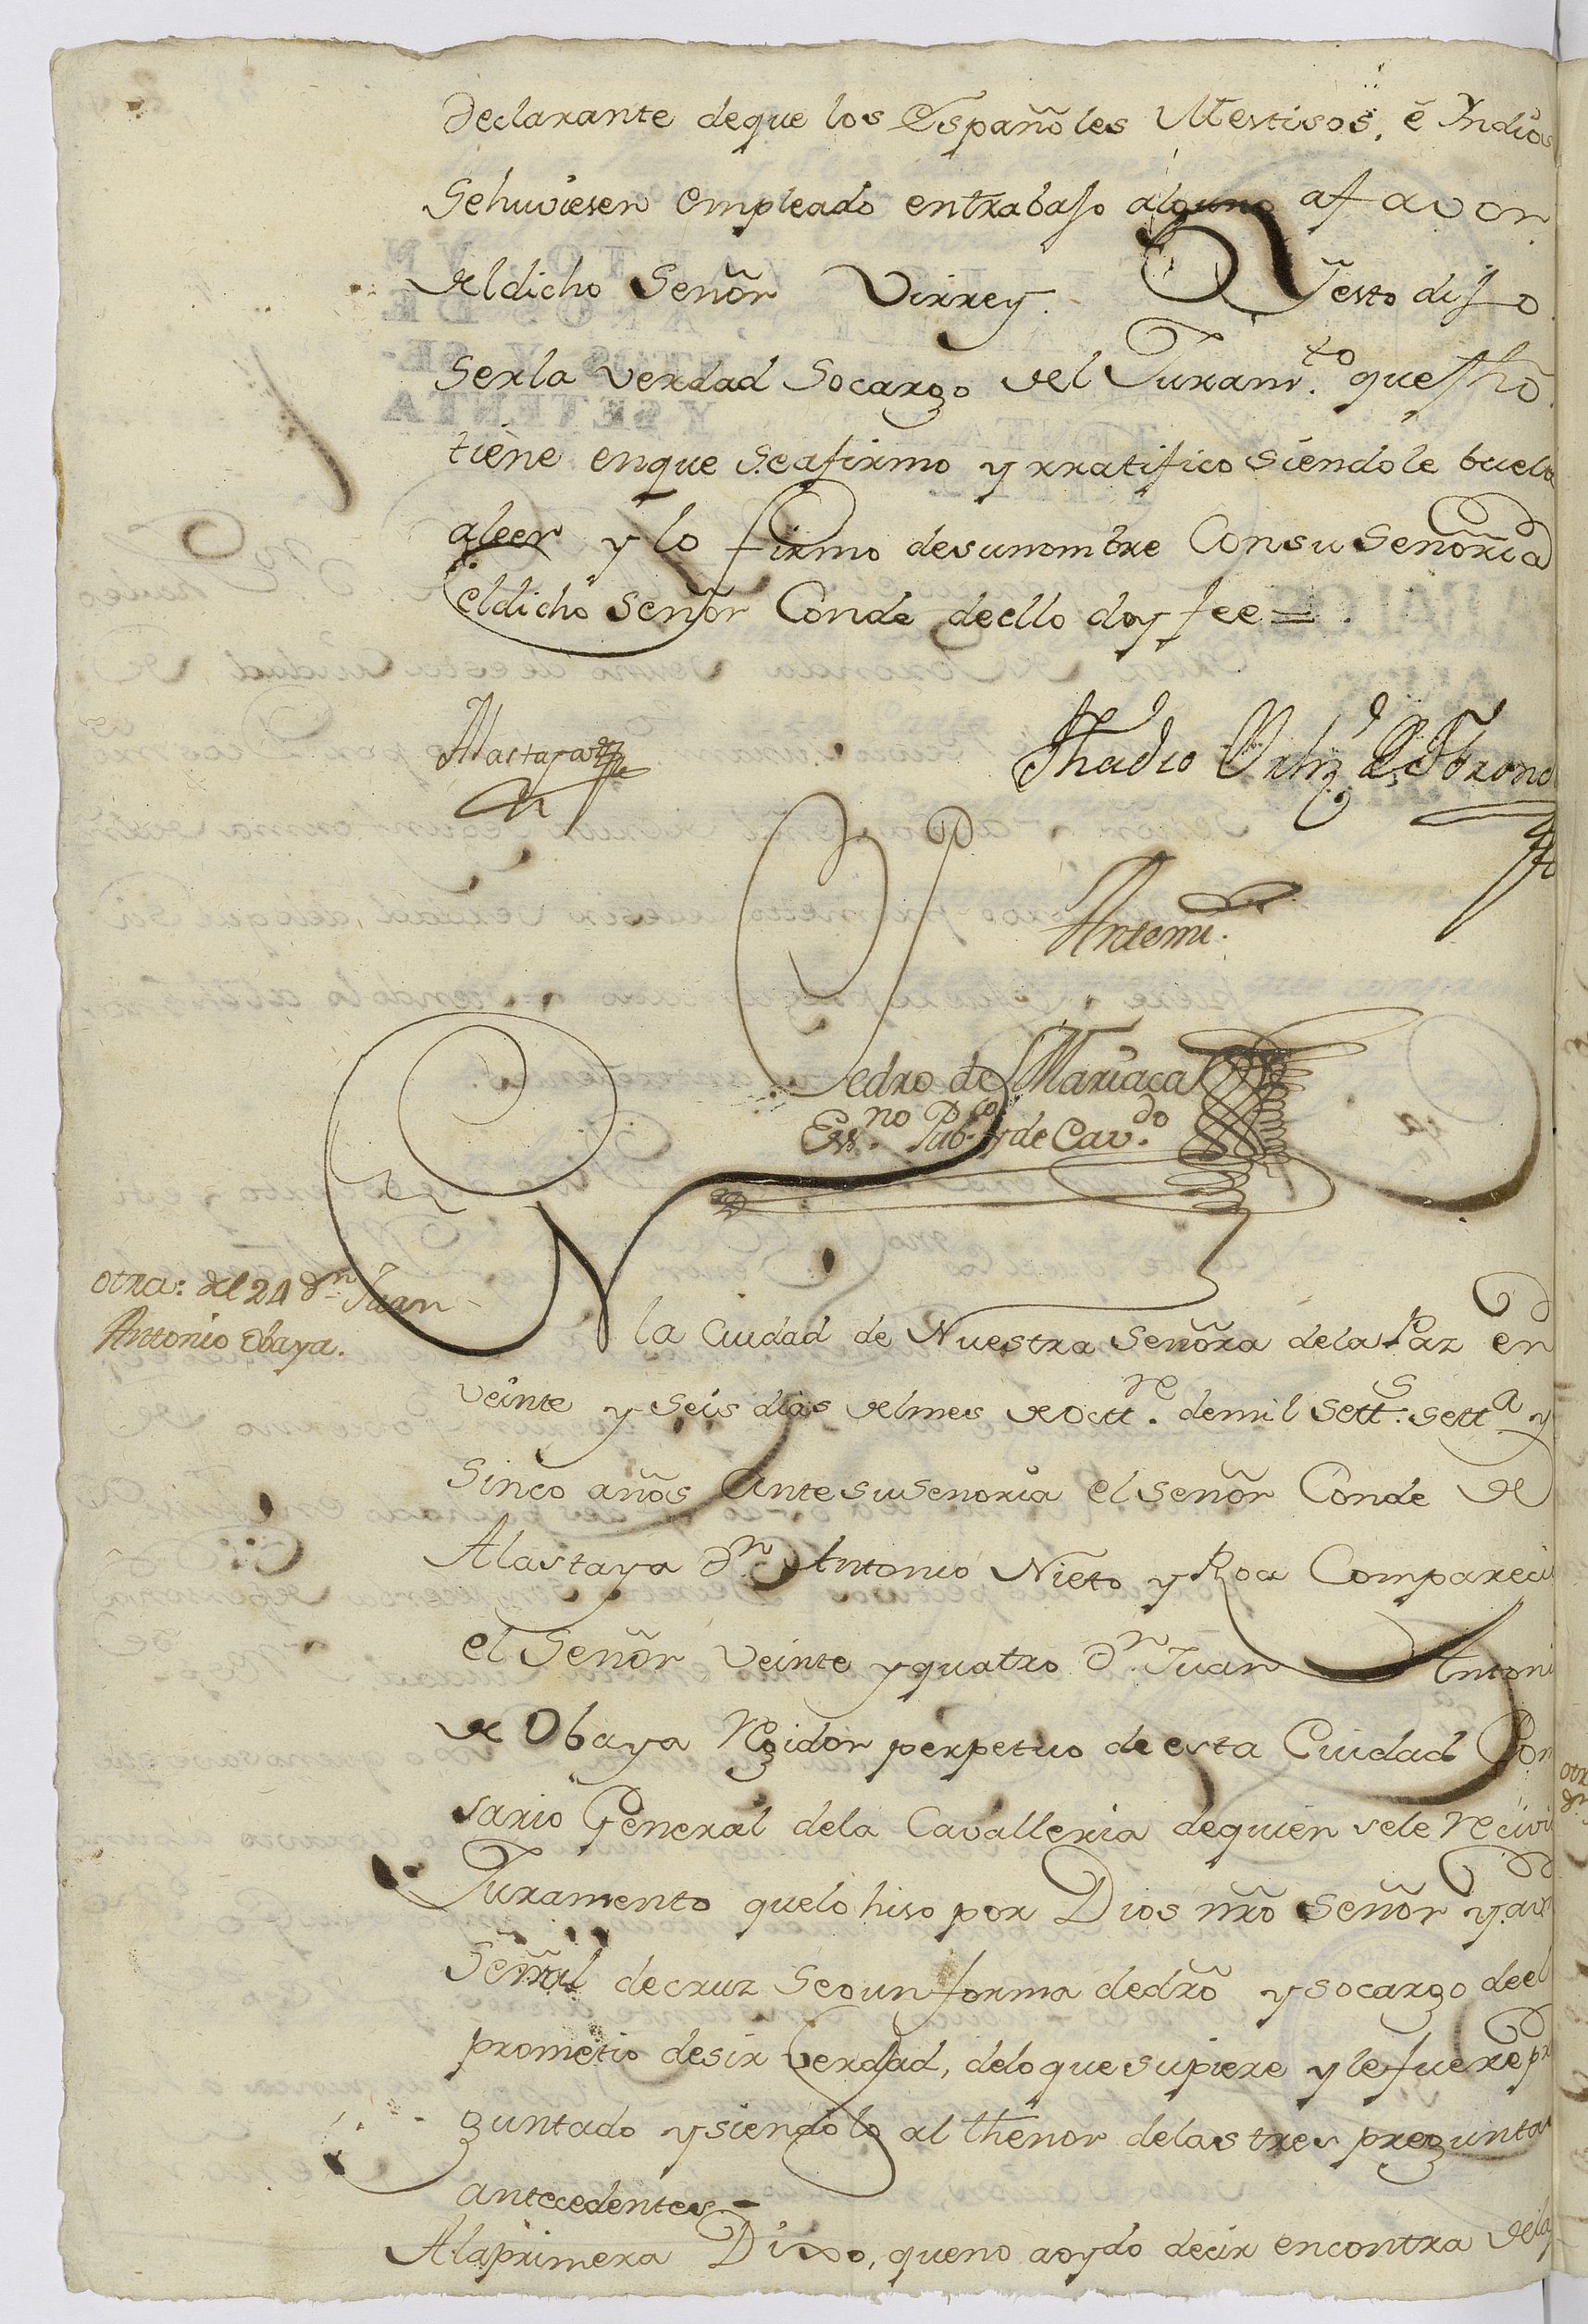 Declarante deque los Españoles Mestisos, é Yndios
Sehuviesen empleado entrabajo alguno afavor
deldicho Señor Virrey. Yesto dijo
Serla verdad Socargo del Juramto. que fho
tiene enque seafirmo yrratifico siendole buelto
aleer ylo firmo desunombre Consu Señoria
eldicho Señor Conde deello doyfee =
Alastaya
Thadeo Ortiz de
Antemi.
Pedro de Mariaca
Essno. Pubco. y de Cavdo.
otra: del 24 Dn. Juan
Antonio Obaya.
EN la Ciudad de Nuestra Señora dela Paz en
veinte y seis dias delmes de Octtre. demil settS. setta y
Sinco años Ante su Senoria el señor Conde de
Alastaya Dn. Antonio Nieto y Roa Compareció
el Señor Veinte yquatro Dn. Juan Antoni
de Obaya Regidor perpetuo de esta Ciudad Com
sario General dela Cavalleria dequien sele recivi
Juramento quelo hiso por Dios nro Señor yaun
Señal decruz Segun forma dedro y socargo deel
prometio desir Verdad, deloquesupiere ylefuere pr
guntado ysiendolo al thenor delas tres preguntas
antecedentes =
Alaprimera Dixo, queno aoydo decir encontra dela